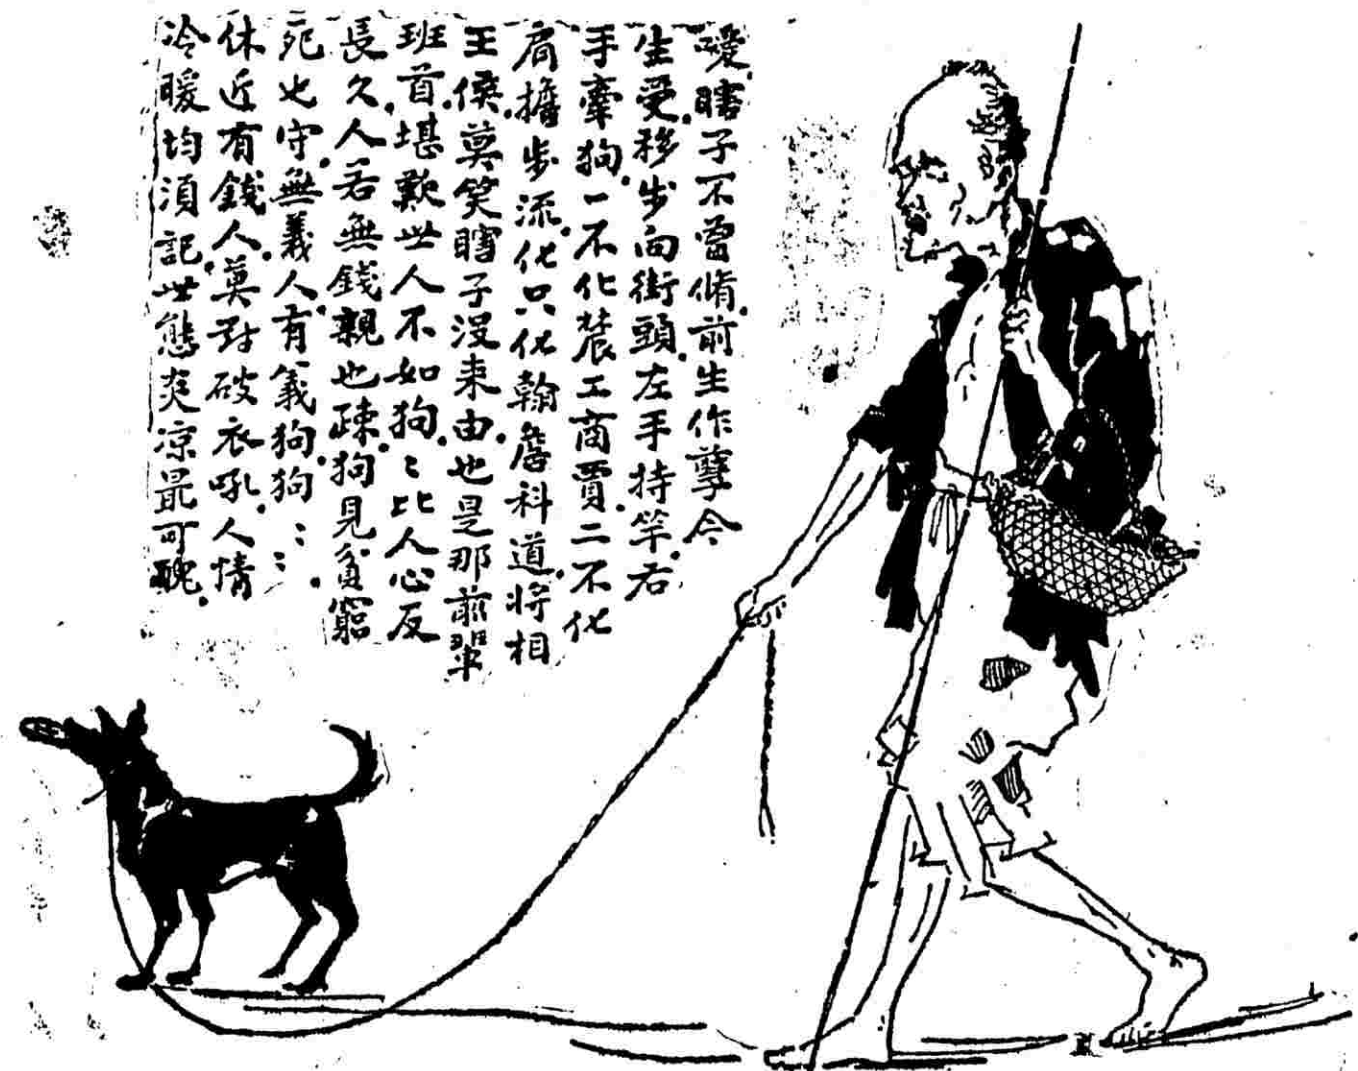 嗳.瞎子不曾脩.前生作孽今
生受.移步向街頭.左手持竿.右
手牽狗.一不化農工商賈.二不化
肩擔步流.化只化翰詹科道.将相
王侯.莫笑瞎子没来由.也是那前輩
班首.堪歎世人不如狗.〻比人心反
長久.人若無錢親也疎.狗見貧窮
死也守.無義人.有義狗.狗〻〻.
休近有錢人.莫对破衣吼.人情
冷暖均須記.世態炎凉最可醜.